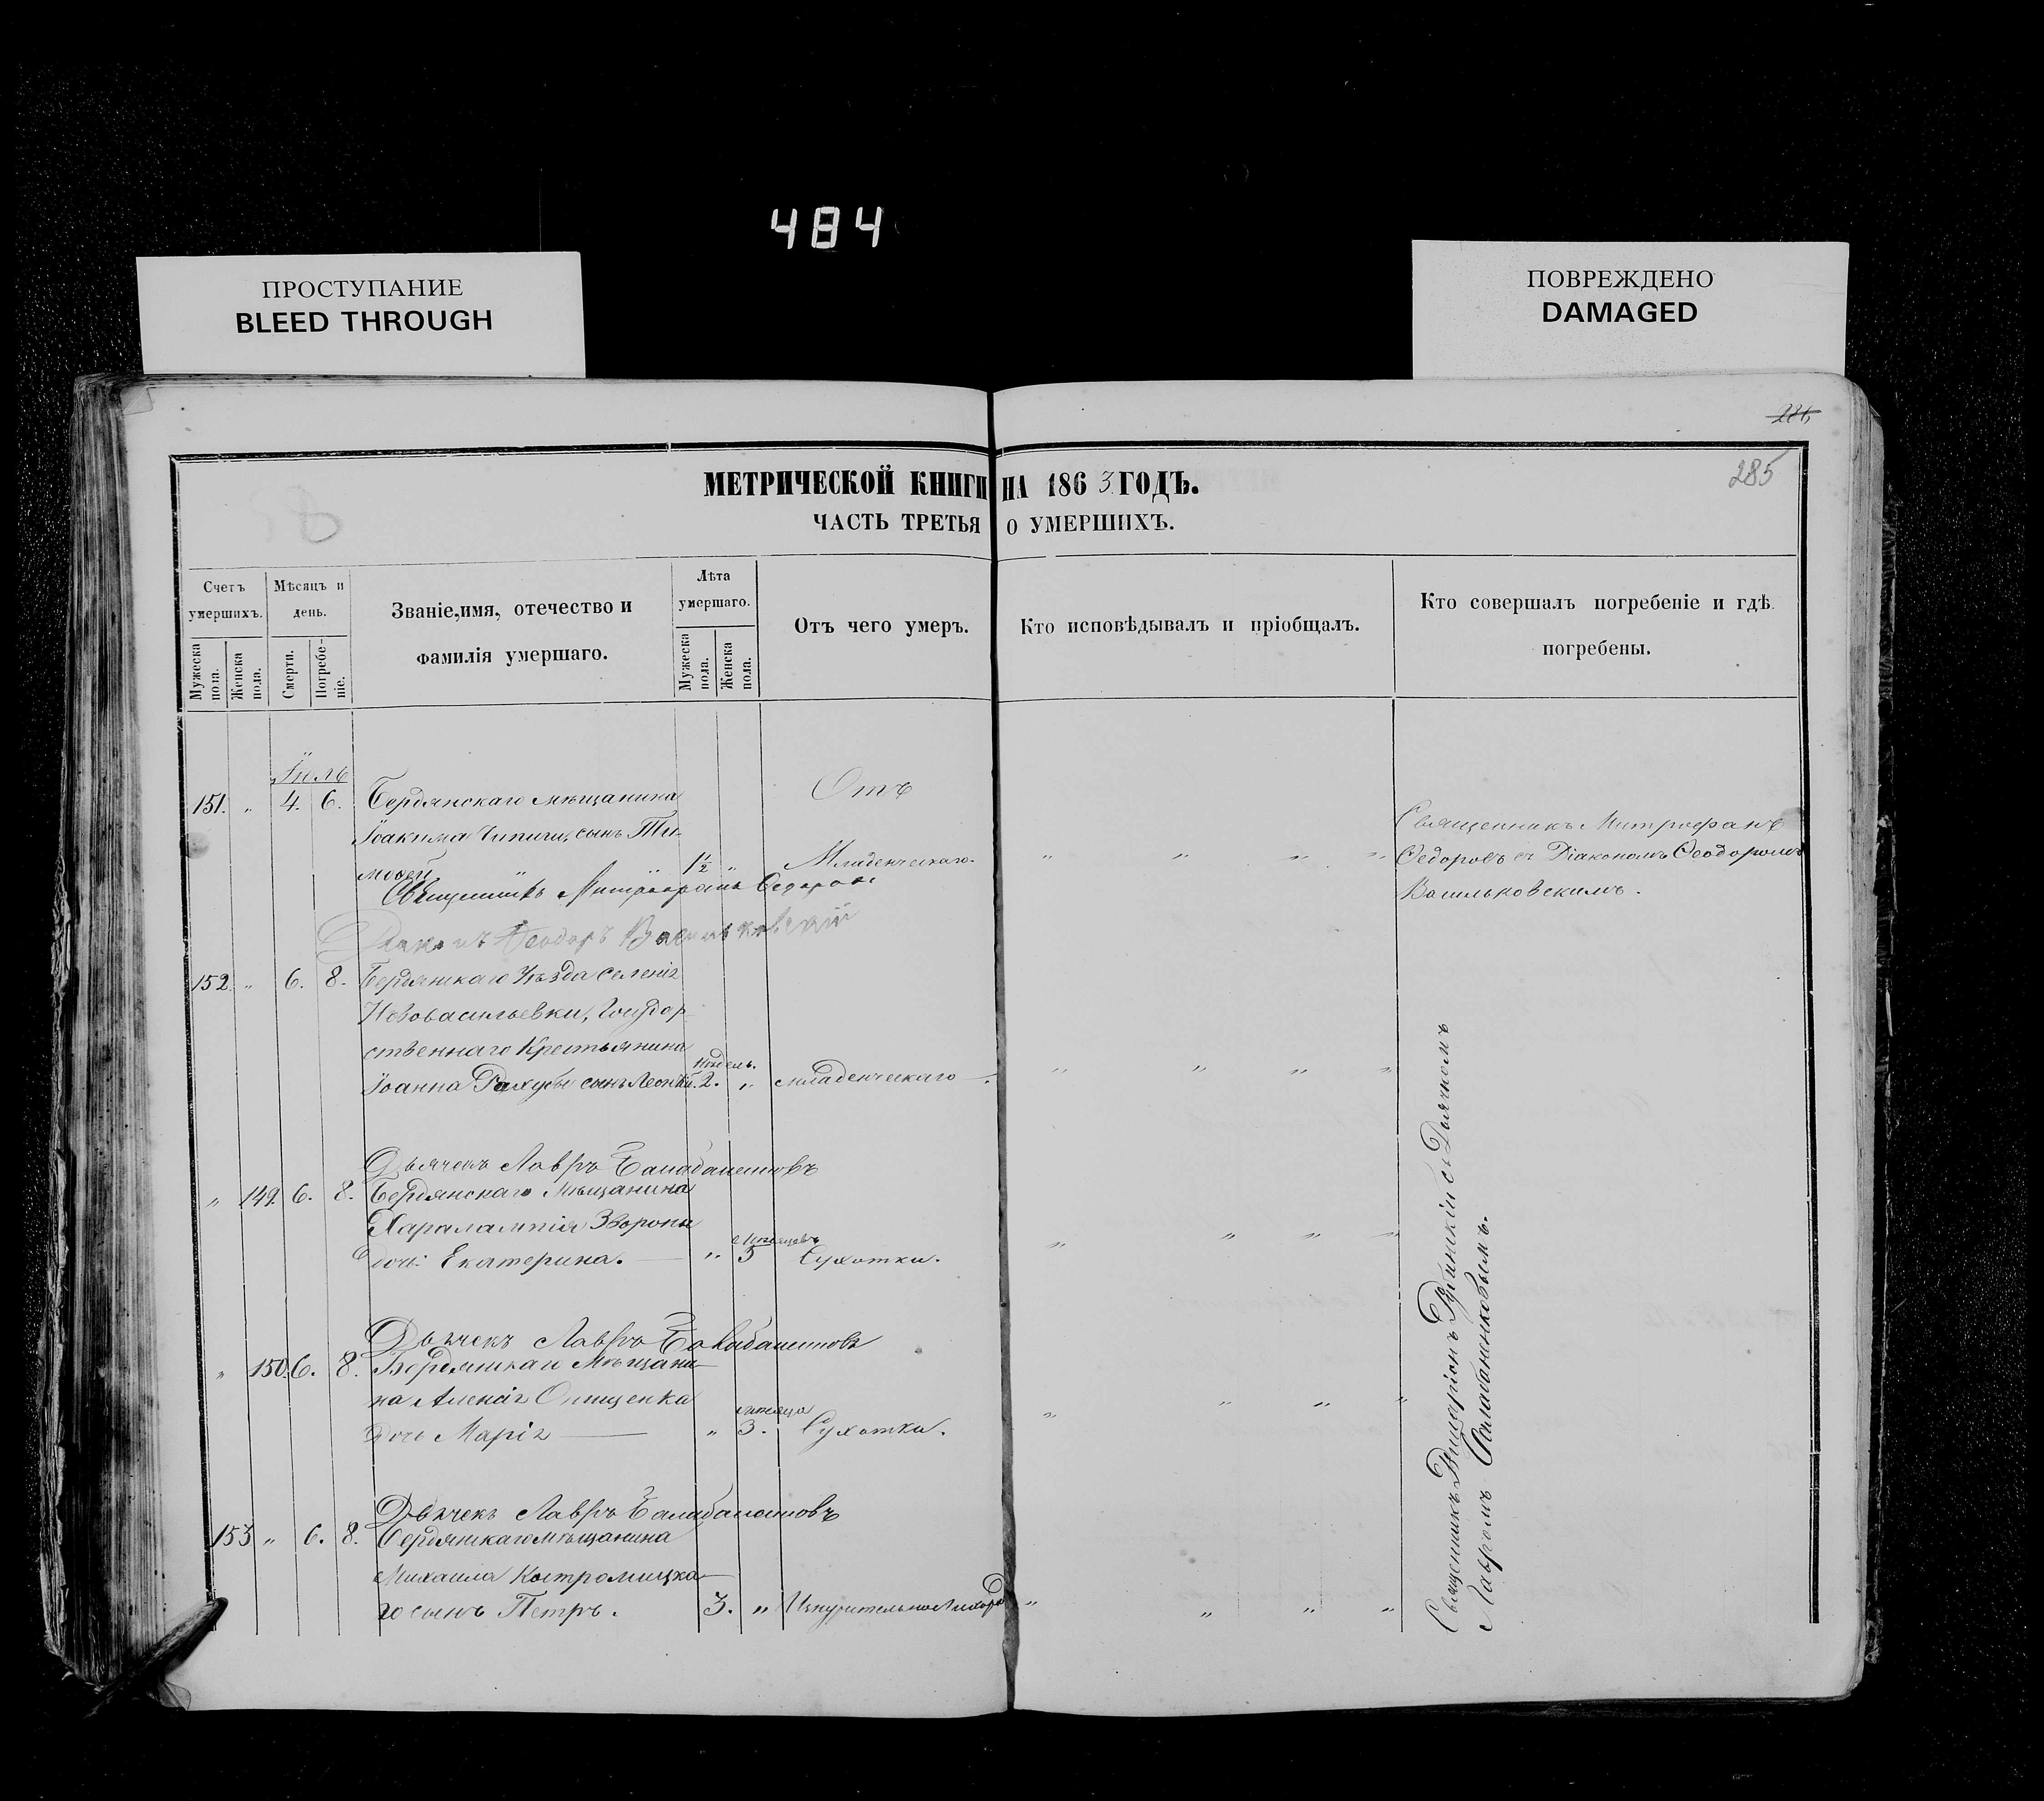 484
ПРОСТУПАНИЕ
BLEED THROUGH
ПОВРЕЖДЕНО
DAMAGED
286
285
МЕТРИЧЕСКОЙ КНИГИ НА 1863 ГОДЪ.
ЧАСТЬ ТРЕТЬЯ О УМЕРШИХЪ.
Счетъ умершихъ.
Мужеска пола.
Женска пола.
Мѣсяцъ и день.
Смерти.
Погребеніе.
Званіе, имя, отечество и
фамилія умершаго.
Лѣта умершаго.
Мужеска пола.
Женска пола.
Отъ чего умеръ.
Кто исповѣдывалъ и пріобщалъ.
Кто совершалъ погребеніе и гдѣ
погребены.
Іюль
Отъ
151. " 4. 6. Бердянскаго мѣщанина
Іоакима сынъ Ти-
моѳей " " 1 1/2 " Младенческаго. " " " "
Священникъ Митрофанъ
Ѳедоровъ съ Діакономъ Ѳеодоромъ
Васильковскимъ.
Священникъ Митрофанъ Ѳедоровъ
Діаконъ Ѳеодоръ Васильковскій
152. " 6. 8. Бердянскаго Уѣзда селенія
Нововасильевки, Государ-
ственнаго Крестьянина
Іоанна сынъ Леонтій. недѣль. 2. " младенческаго. " " " "
Дьячекъ Лавръ Балабаненковъ
" 149. 6. 8. Бердянскаго Мѣщанина
Харалампія Звороны
дочь Екатерина. " мѣсяцовъ 5 Сухотки. " " " "
Дьячекъ Лавръ Балабаненковъ
" 150. 6. 8. Бердянскаго Мѣщани-
на Алексія Онищенка
дочь Марія " мѣсяца 3. Сухотки. " " " "
Дьячекъ Лавръ Балабаненковъ
153 " 6. 8. Бердянскаго мѣщанина
Михаила Костромицка-
го сынъ Петръ. 3. " " " " "
Священникъ Виссаріонъ съ Дьячкомъ
Лавромъ Балабаненковымъ.